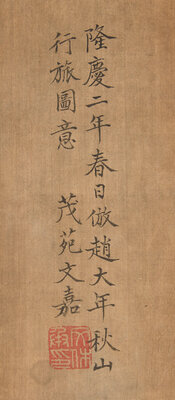 隆慶二年春日倣趙大年秋山
行旅圖意　茂苑文嘉